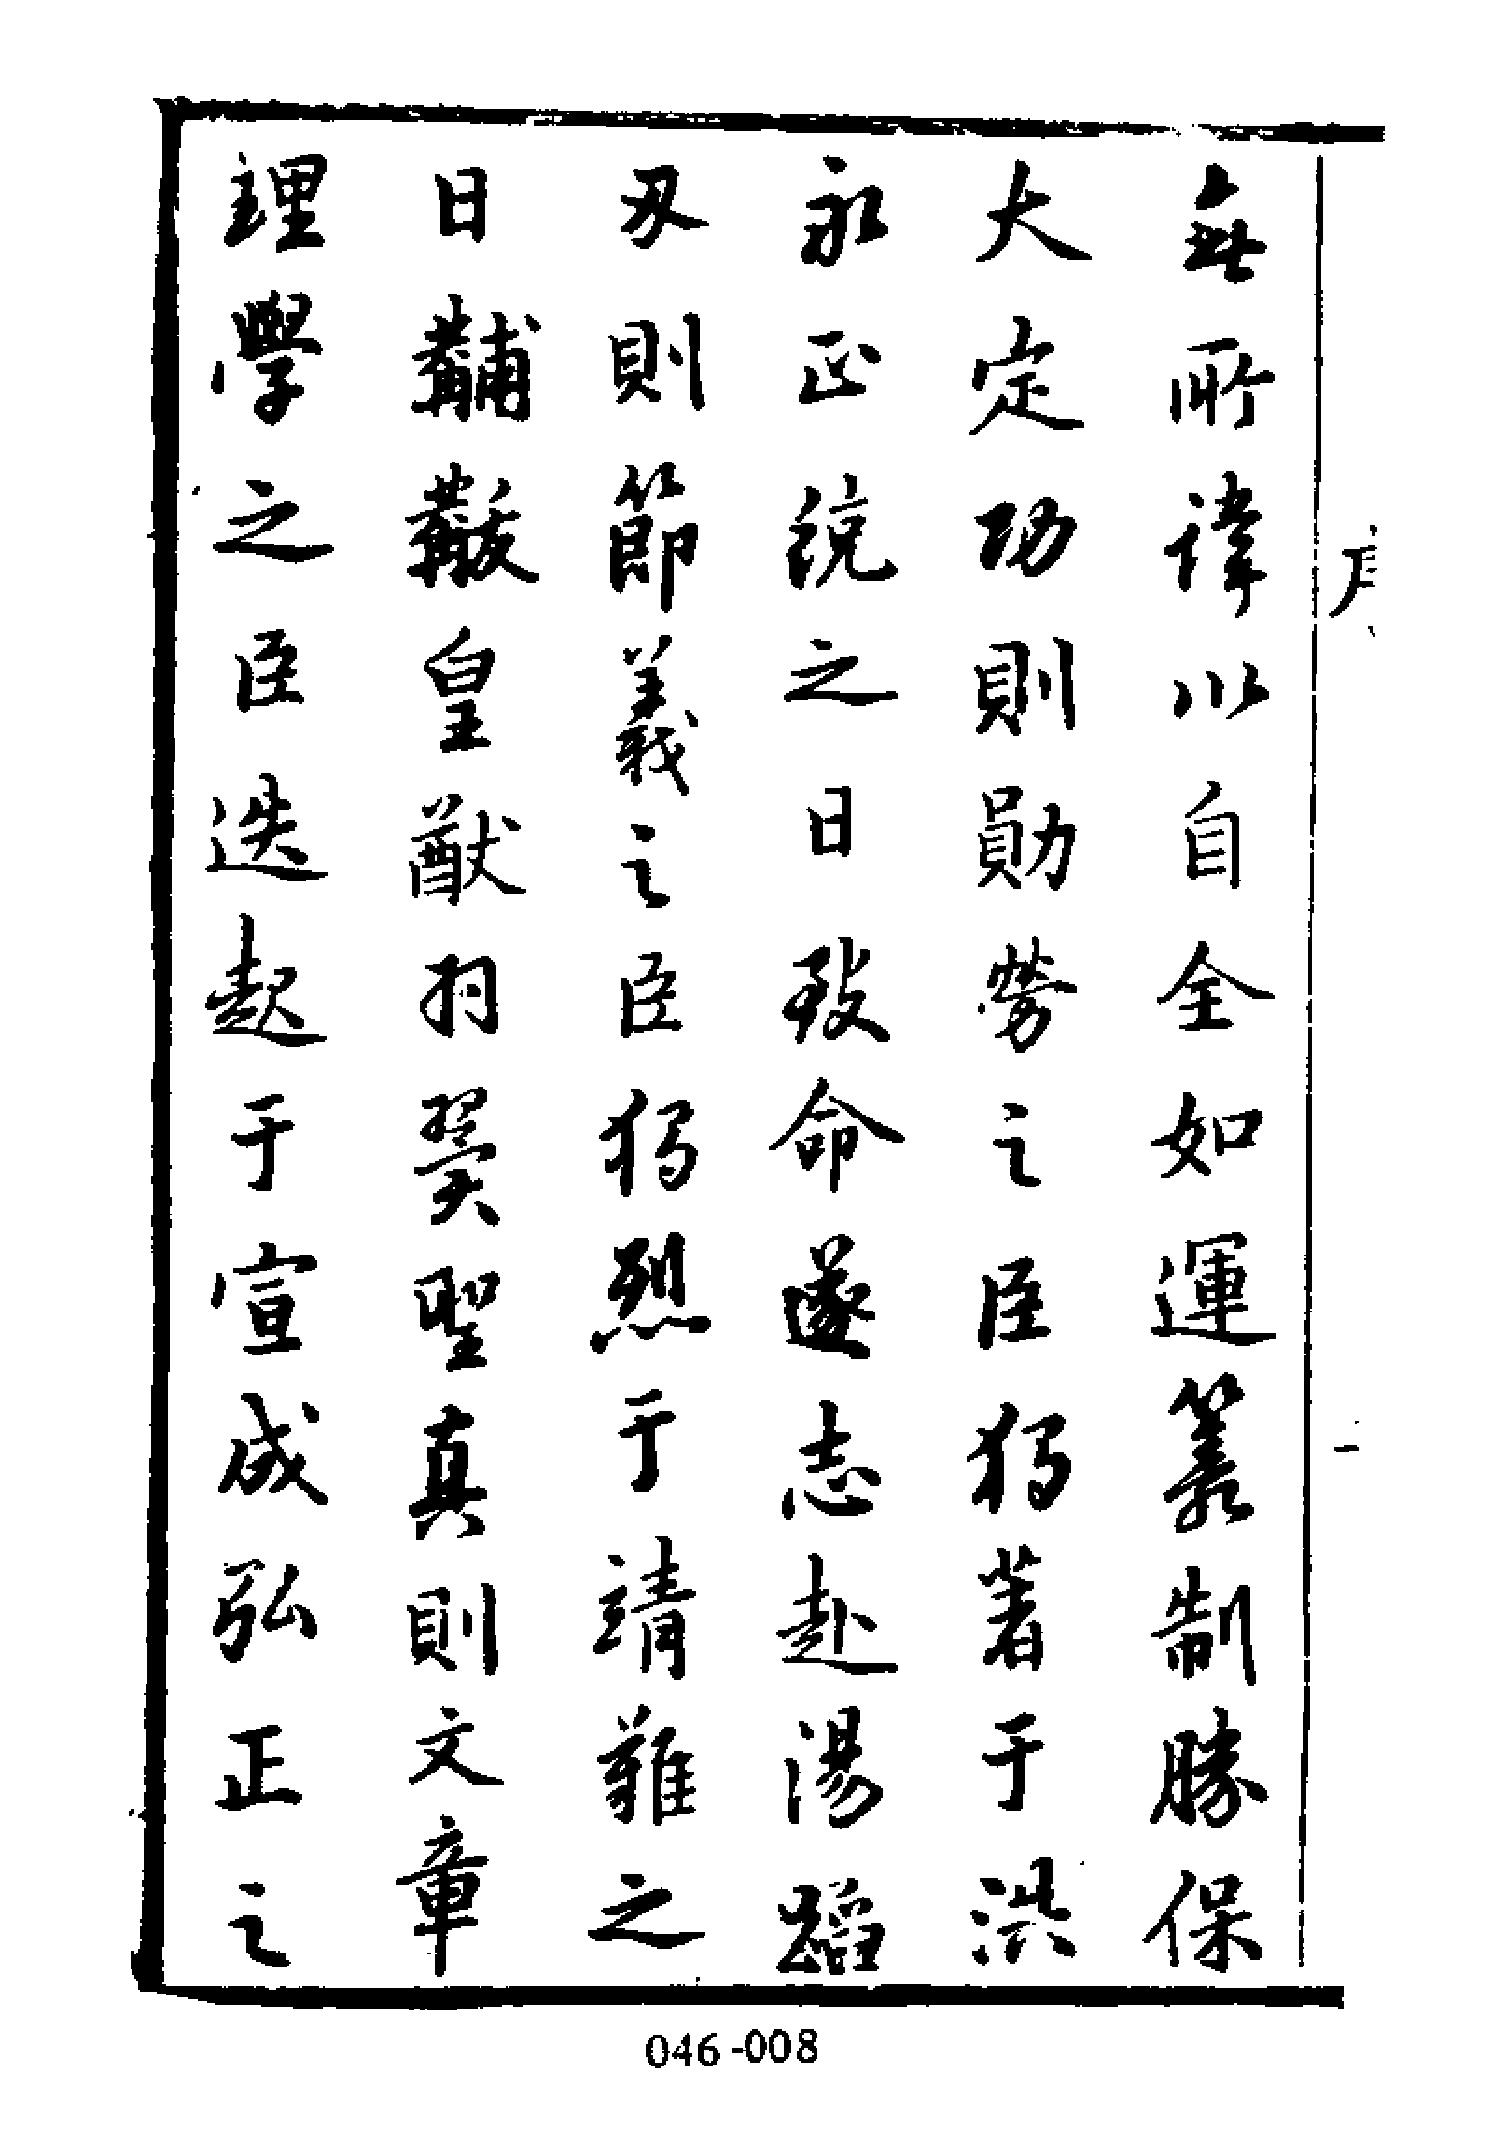 無所諱以自全如運籌制勝保
大定功則勛勞之臣獨著于洪
永正統之日致命遂志赴湯蹈
刃則節義之臣獨烈于靖難之
日黼黻皇猷羽翼聖真則文章
理學之臣迭起于宣成弘正之
一
046-008